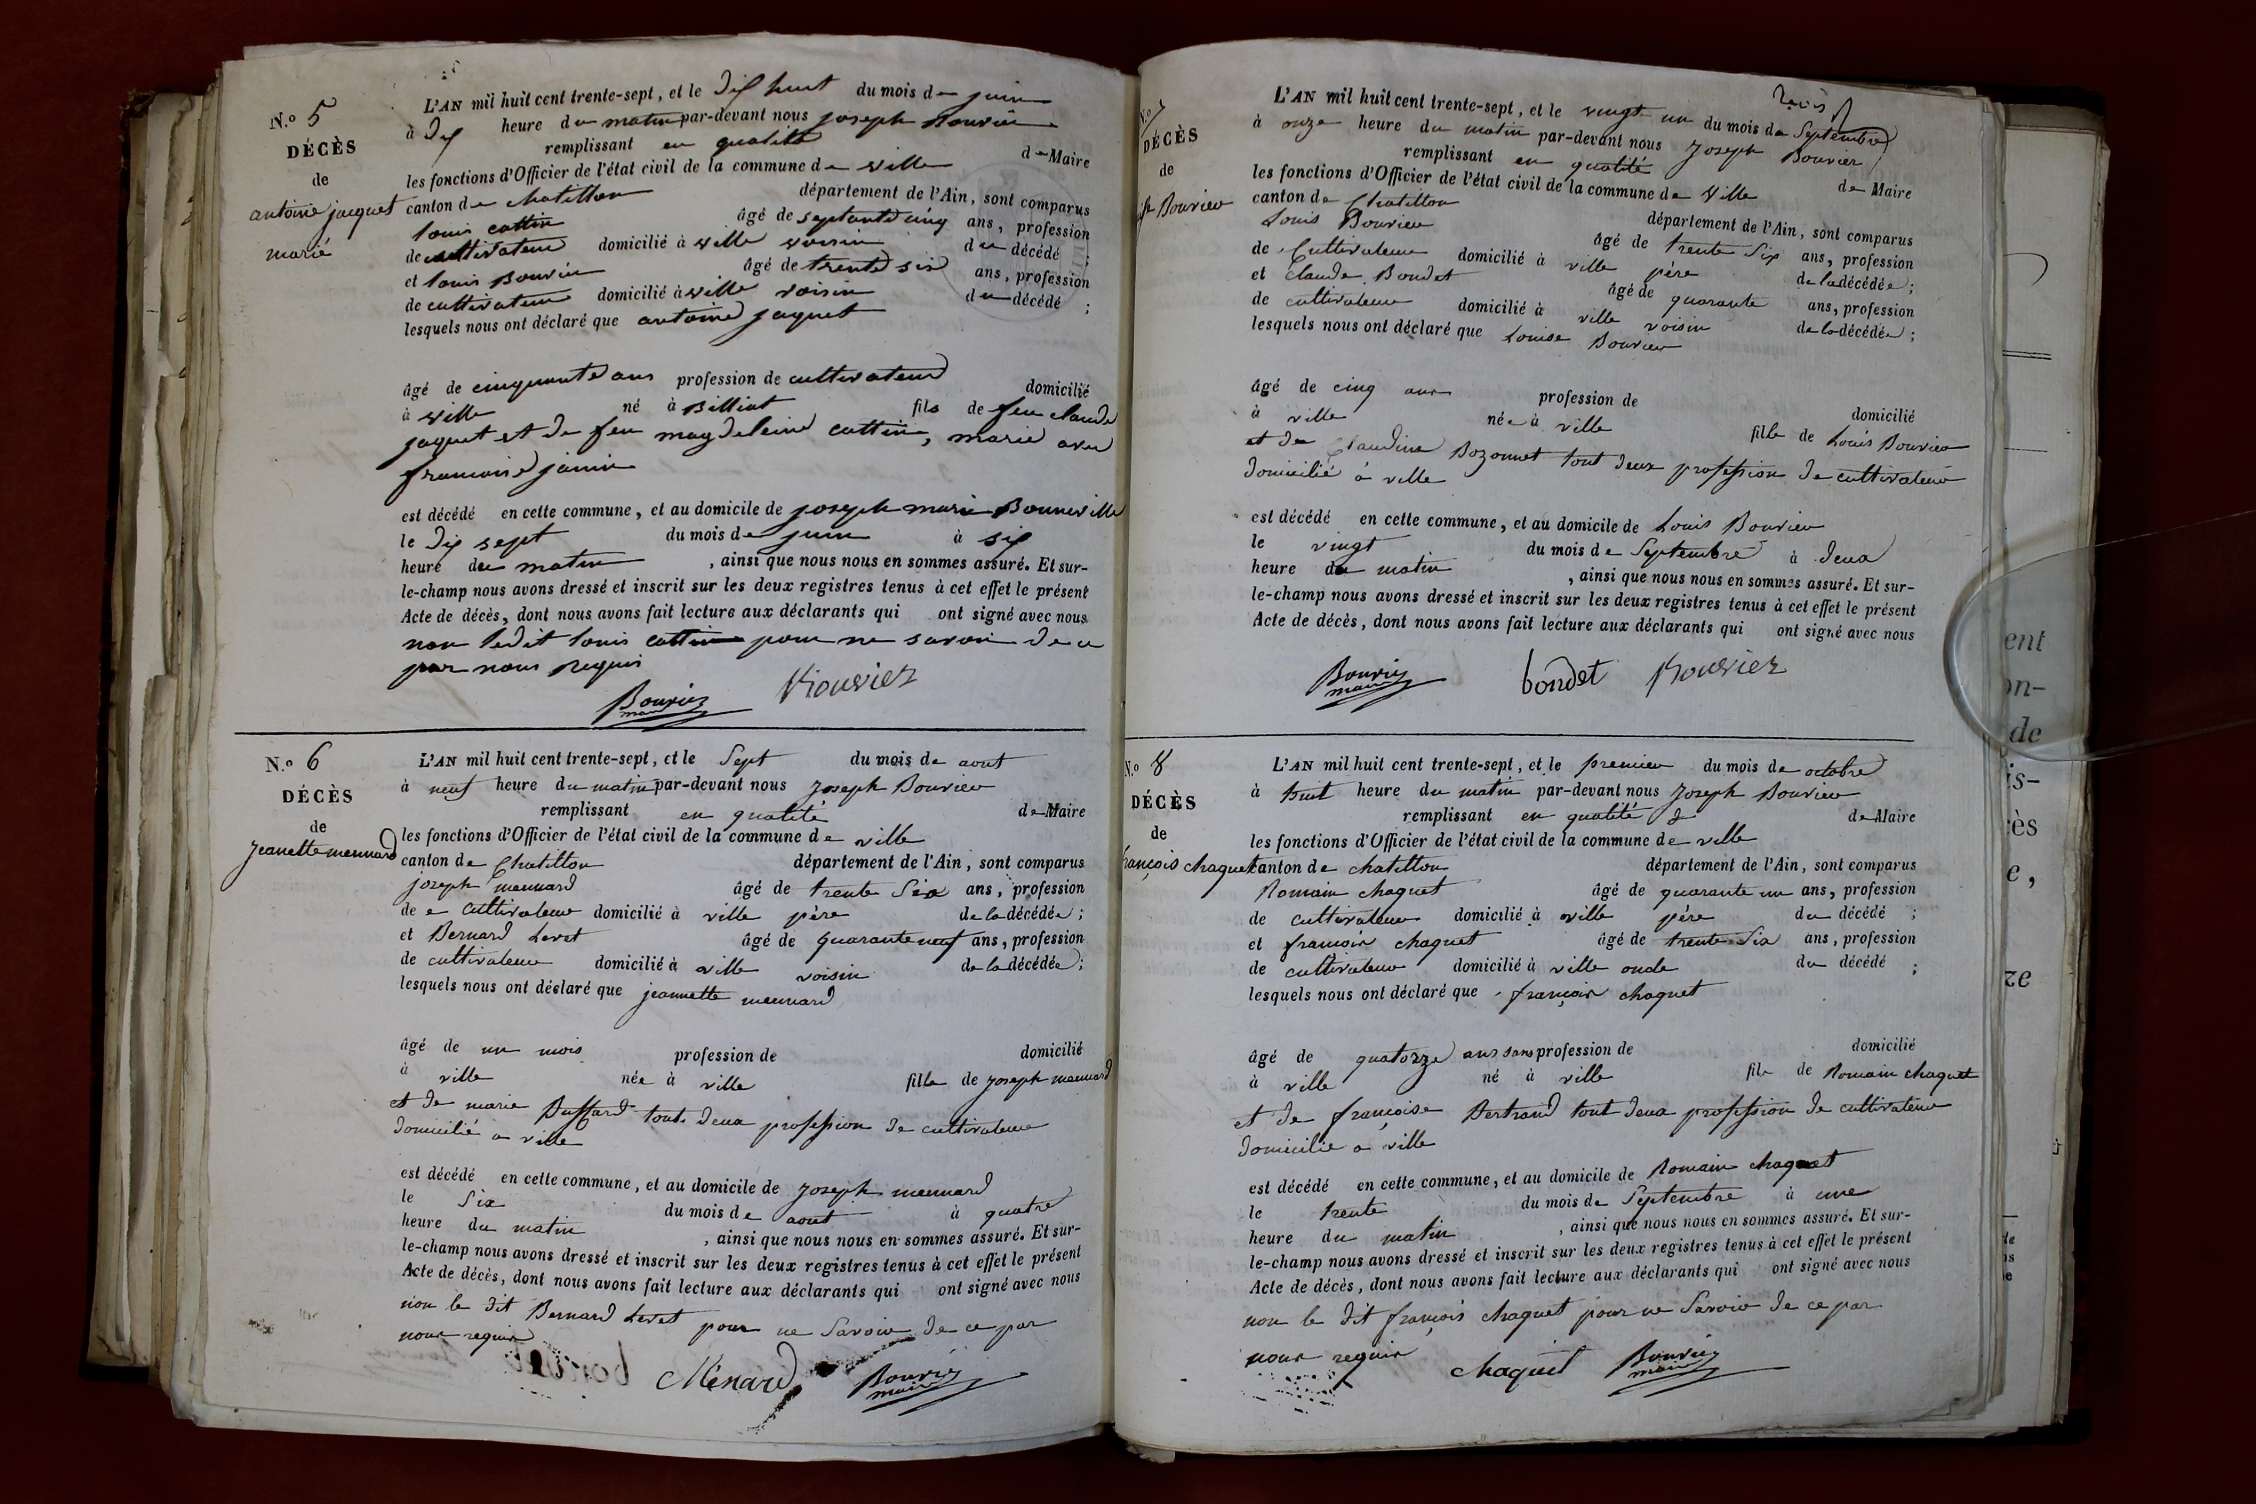 N.o 5
DÉCÈS
de
antoine jacquet
marié
L'AN mil huit cent trente-sept, et le dix huit du mois de juin
à dix heure du matin par-devant nous joseph Bouvier
remplissant en qualité de Maire
les fonctions d'Officier de l'état civil de la commune de ville
canton de chatillon département de l'Ain, sont comparus
louis cottin âgé de septante cinq ans, profession
de cultivateur domicilié à ville voisin du décédé ;
et louis Bouvier âgé de trente six ans, profession
de cultivateur domicilié à ville voisin du décédé ;
lesquels nous ont déclaré que antoine jaquet
âgé de cinquante ans profession de cultivateur domicilié
à ville né à Billiat fils de feu claude
jaquet et de feu magdeleine cottin, marié avec
francoise janin
est décédé en cette commune, et au domicile de joseph marie Bonneville
le dix sept du mois de juin à six
heure du matin , ainsi que nous nous en sommes assuré. Et sur-
le-champ nous avons dressé et inscrit sur les deux registres tenus à cet effet le présent
Acte de décès, dont nous avons fait lecture aux déclarants qui ont signé avec nous
non ledit louis cottin pour ne savoir de ce
par nous requis
Bouvier
maire
Bouvier
N.o 6
DÉCÈS
de
jeanette mennard
L'AN mil huit cent trente-sept, et le sept du mois de aout
à neuf heure du matin par-devant nous joseph Bouvier
remplissant en qualité de Maire
les fonctions d'Officier de l'état civil de la commune de ville
canton de Chatillon département de l'Ain, sont comparus
joseph mennard âgé de trente six ans, profession
de e cultivateur domicilié à ville père de la décédée ;
et Bernard Levet âgé de quarante neuf ans, profession
de cultivateur domicilié à ville voisin de la décédée ;
lesquels nous ont déclaré que jeannette mennard
âgé de un mois profession de domicilié
à ville née à ville fille de joseph mennard
et de marie Buffard tout deux profession de cultivateur
domicilié a ville
est décédé en cette commune, et au domicile de joseph mennard
le six du mois de aout à quatre
heure du matin , ainsi que nous nous en sommes assuré. Et sur-
le-champ nous avons dressé et inscrit sur les deux registres tenus à cet effet le présent
Acte de décès, dont nous avons fait lecture aux déclarants qui ont signé avec nous
non le dit Bernard Levet pour ne savoir de ce par
nous requis
Ménard
Bouvier
maire
N.o 7
DÉCÈS
de
Bouvier
L'AN mil huit cent trente-sept, et le vingt un du mois de Septembre
à onze heure du matin par-devant nous Joseph Bouvier
remplissant en qualité de Maire
les fonctions d'Officier de l'état civil de la commune de Ville
canton de Chatillon département de l'Ain, sont comparus
Louis Bouvier âgé de trente six ans, profession
de Cultivateur domicilié à ville père de la décédée ;
et Claude Bondet âgé de quarante ans, profession
de cultivateur domicilié à ville voisin de la décédée ;
lesquels nous ont déclaré que Louise Bouvier
âgé de cinq ans profession de domicilié
à ville née à ville fille de Louis Bouvier
et de Claudine Bozonnet tout deux profession de cultivateur
domicilié à ville
est décédé en cette commune, et au domicile de Louis Bouvier
le vingt du mois de Septembre à deux
heure du matin , ainsi que nous nous en sommes assuré. Et sur-
le-champ nous avons dressé et inscrit sur les deux registres tenus à cet effet le présent
Acte de décès, dont nous avons fait lecture aux déclarants qui ont signé avec nous
Bouvier
maire
bondet
Bouvier
N.o 8
DÉCÈS
de
françois chaquet
L'AN mil huit cent trente-sept, et le premier du mois de octobre
à huit heure du matin par-devant nous Joseph Bouvier
remplissant en qualité de Maire
les fonctions d'Officier de l'état civil de la commune de ville
canton de chatillon département de l'Ain, sont comparus
Romain chaquet âgé de quarante un ans, profession
de cultivateur domicilié à ville père du décédé ;
et françois chaquet âgé de trente six ans, profession
de cultivateur domicilié à ville oncle du décédé ;
lesquels nous ont déclaré que françois chaquet
âgé de quatorze ans sans profession de domicilié
à ville né à ville fils de Romain chaquet
et de françoise Bertrand tout deux profession de cultivateur
domicilié à ville
est décédé en cette commune, et au domicile de Romain chaquet
le trente du mois de Septembre à une
heure du matin , ainsi que nous nous en sommes assuré. Et sur-
le-champ nous avons dressé et inscrit sur les deux registres tenus à cet effet le présent
Acte de décès, dont nous avons fait lecture aux déclarants qui ont signé avec nous
non le dit françois chaquet pour ne savoir de ce par
nous requis
chaquet
Bouvier
maire